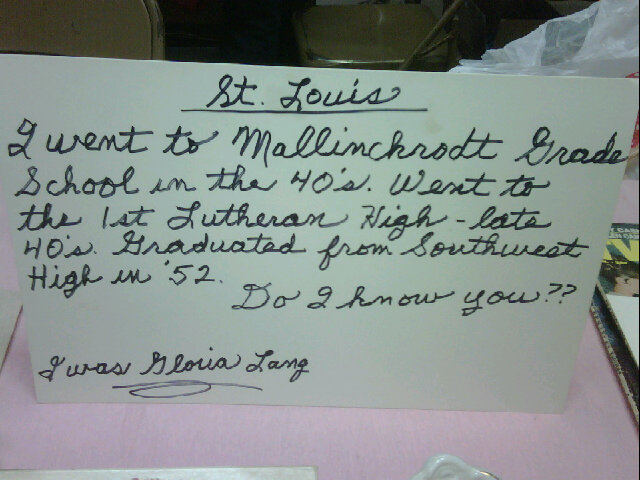 St. Louis
I went to Mallinckrodt Grade
School in the 40's. Went to
the 1st Lutheran High - late
40's. Graduated from Southwest
High in '52.
Do I know you??
I was Gloria Lang